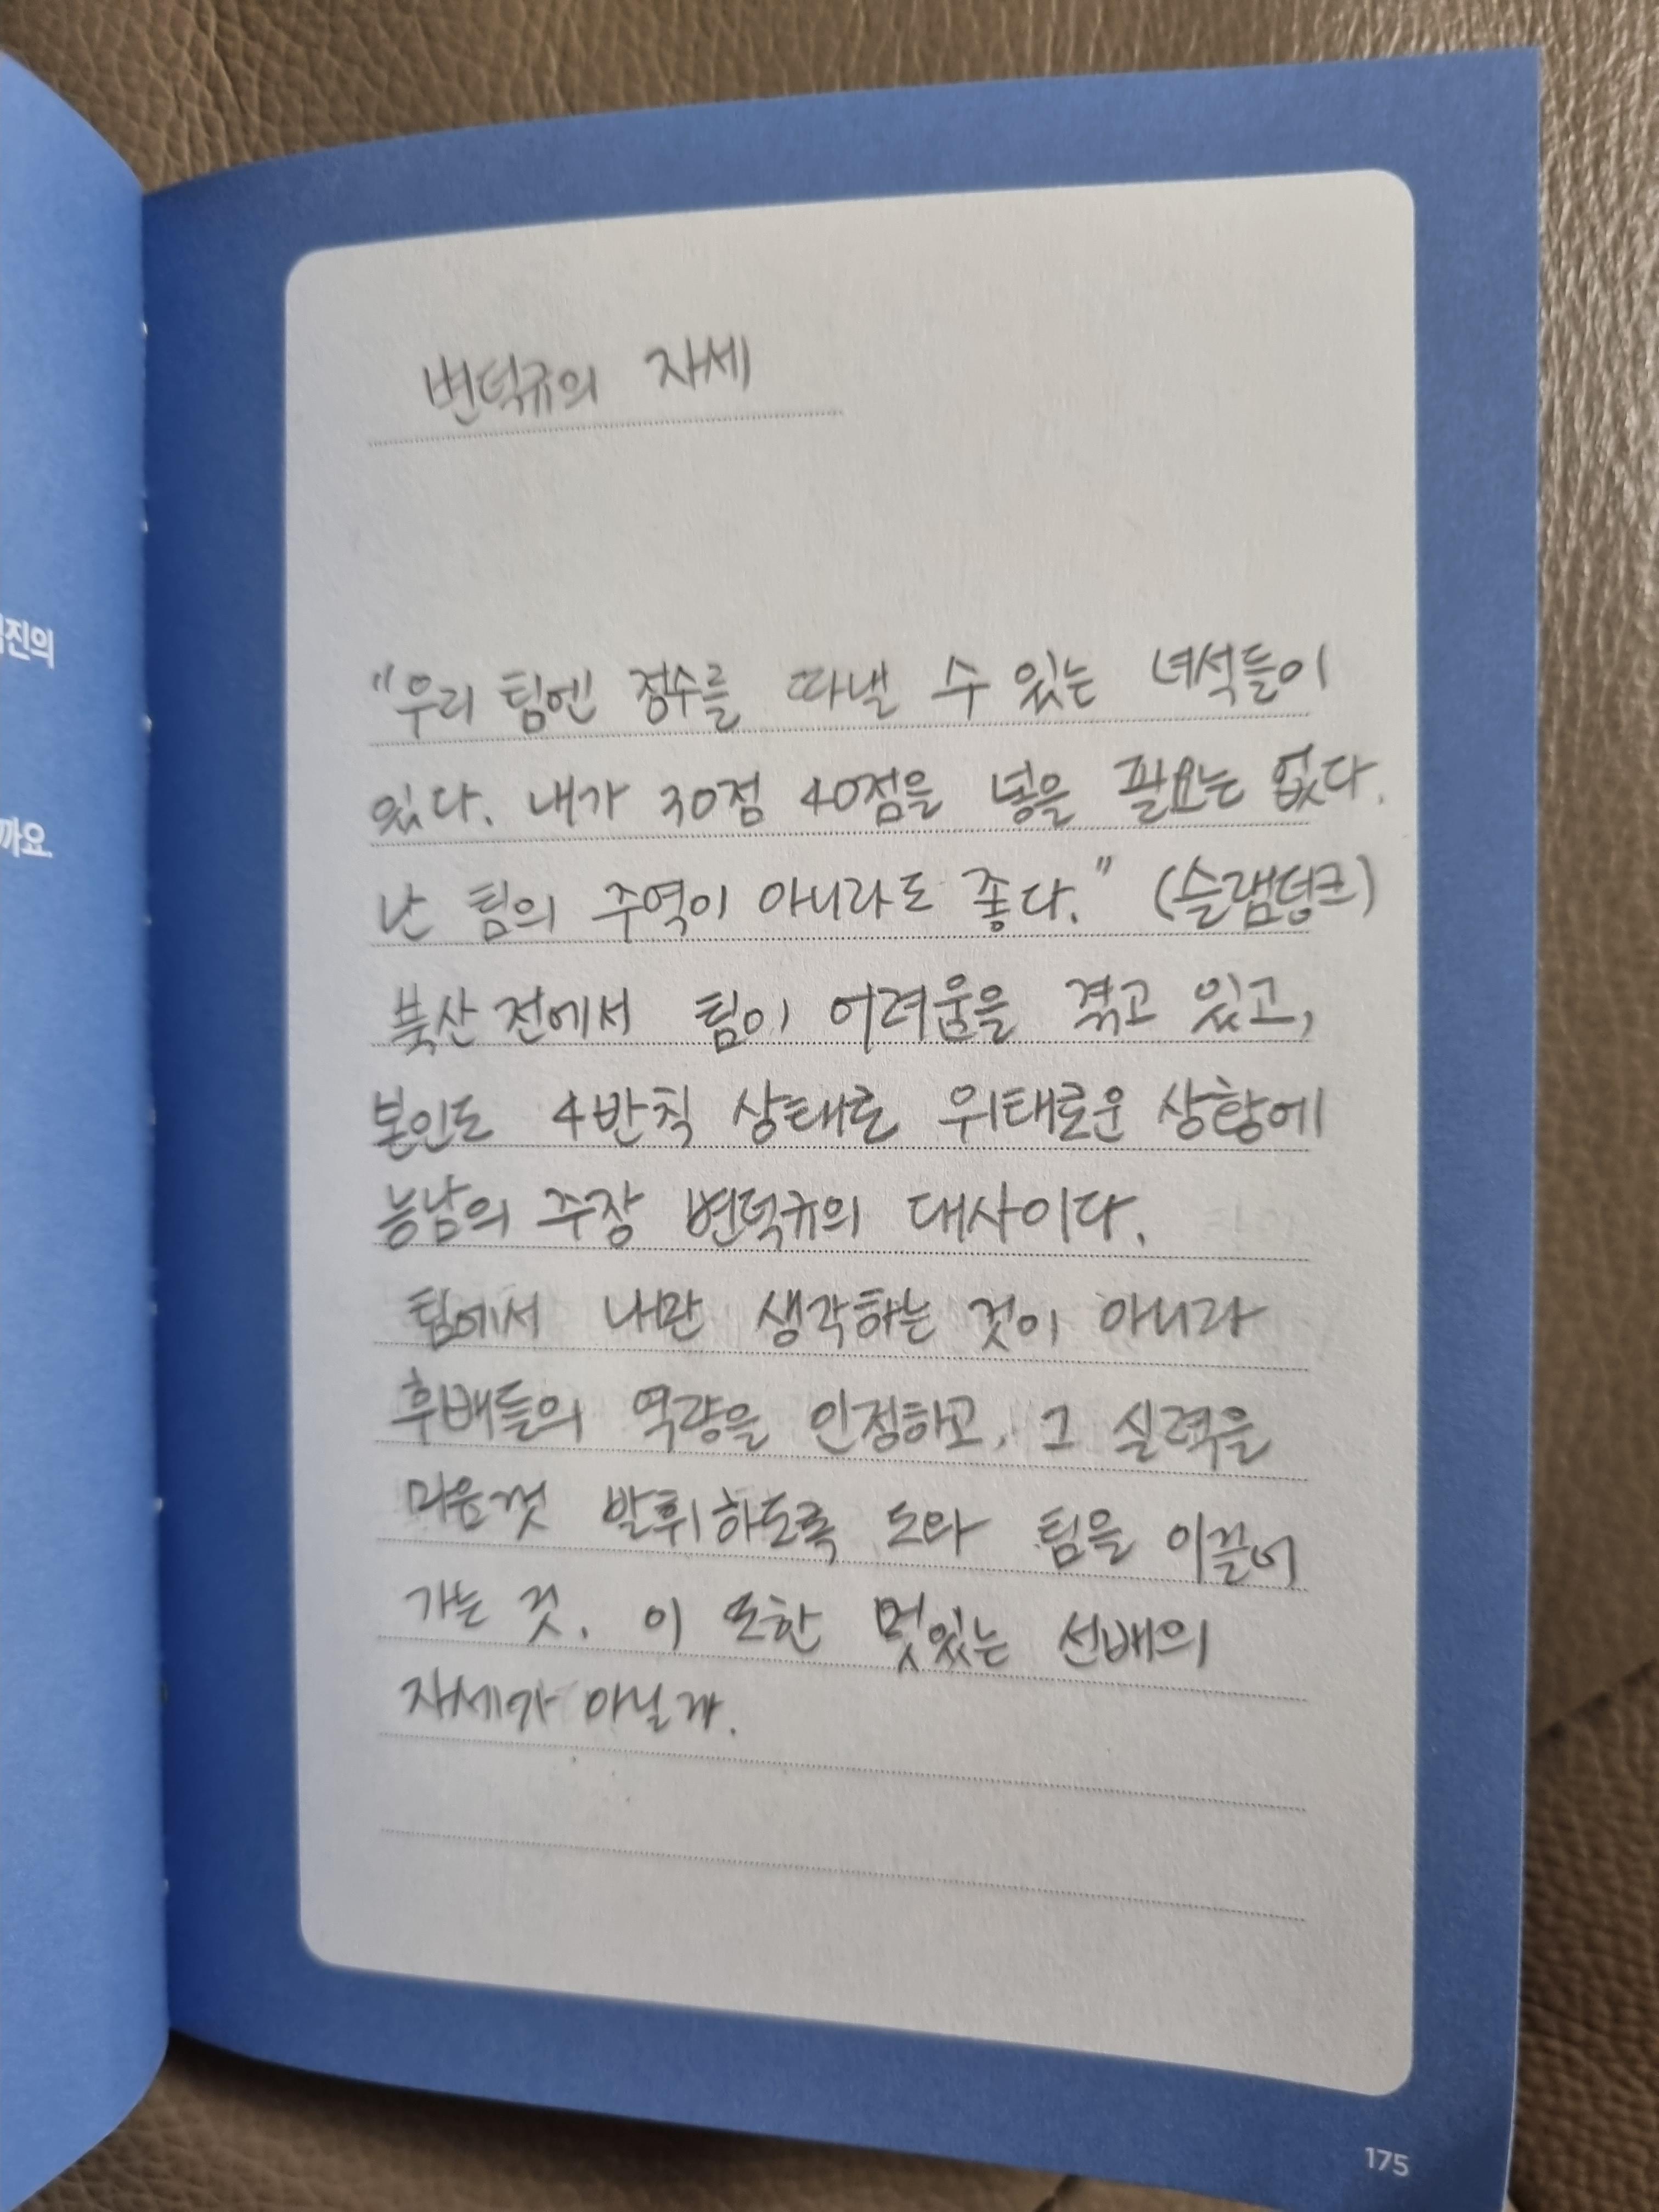 진의
까요.
변덕규의 자세
"우리 팀엔 점수를 따낼 수 있는 녀석들이
있다. 내가 30점 40점을 넣을 필요는 없다.
난 팀의 주역이 아니라도 좋다." (슬램덩크)
북산 전에서 팀이 어려움을 겪고 있고,
본인도 4반칙 상태로 위태로운 상황에
능남의 주장 변덕규의 대사이다.
팀에서 나만 생각하는 것이 아니라
후배들의 역량을 인정하고, 그 실력을
마음껏 발휘하도록 도와 팀을 이끌어
가는 것. 이 또한 멋있는 선배의
자세가 아닐까.
175